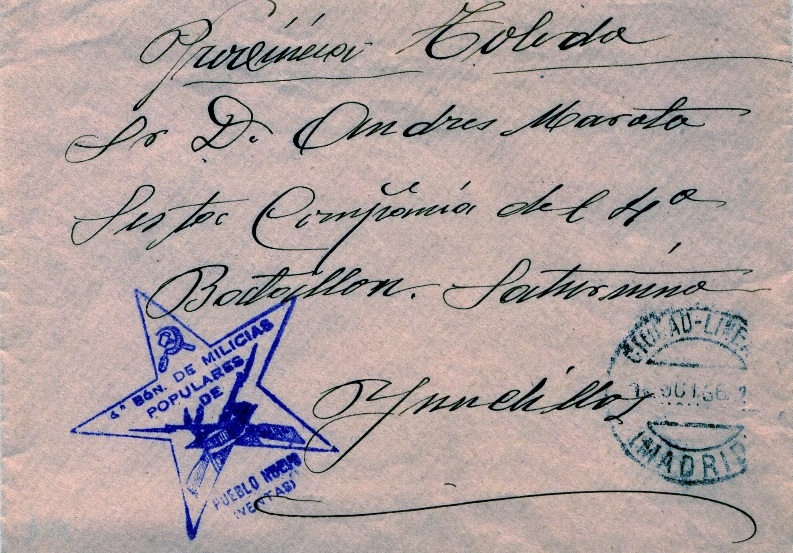 Provincia Toledo
Sr D. Andres Maroto
Sesta Compañia del 4º
Batallon. Saturnino
Yunclillos
4º BÓN. DE MILICIAS
POPULARES
DE
PUEBLO NUEVO
(VENTAS)
CIUDAD-LINEAL
OCT 36
(MADRID)